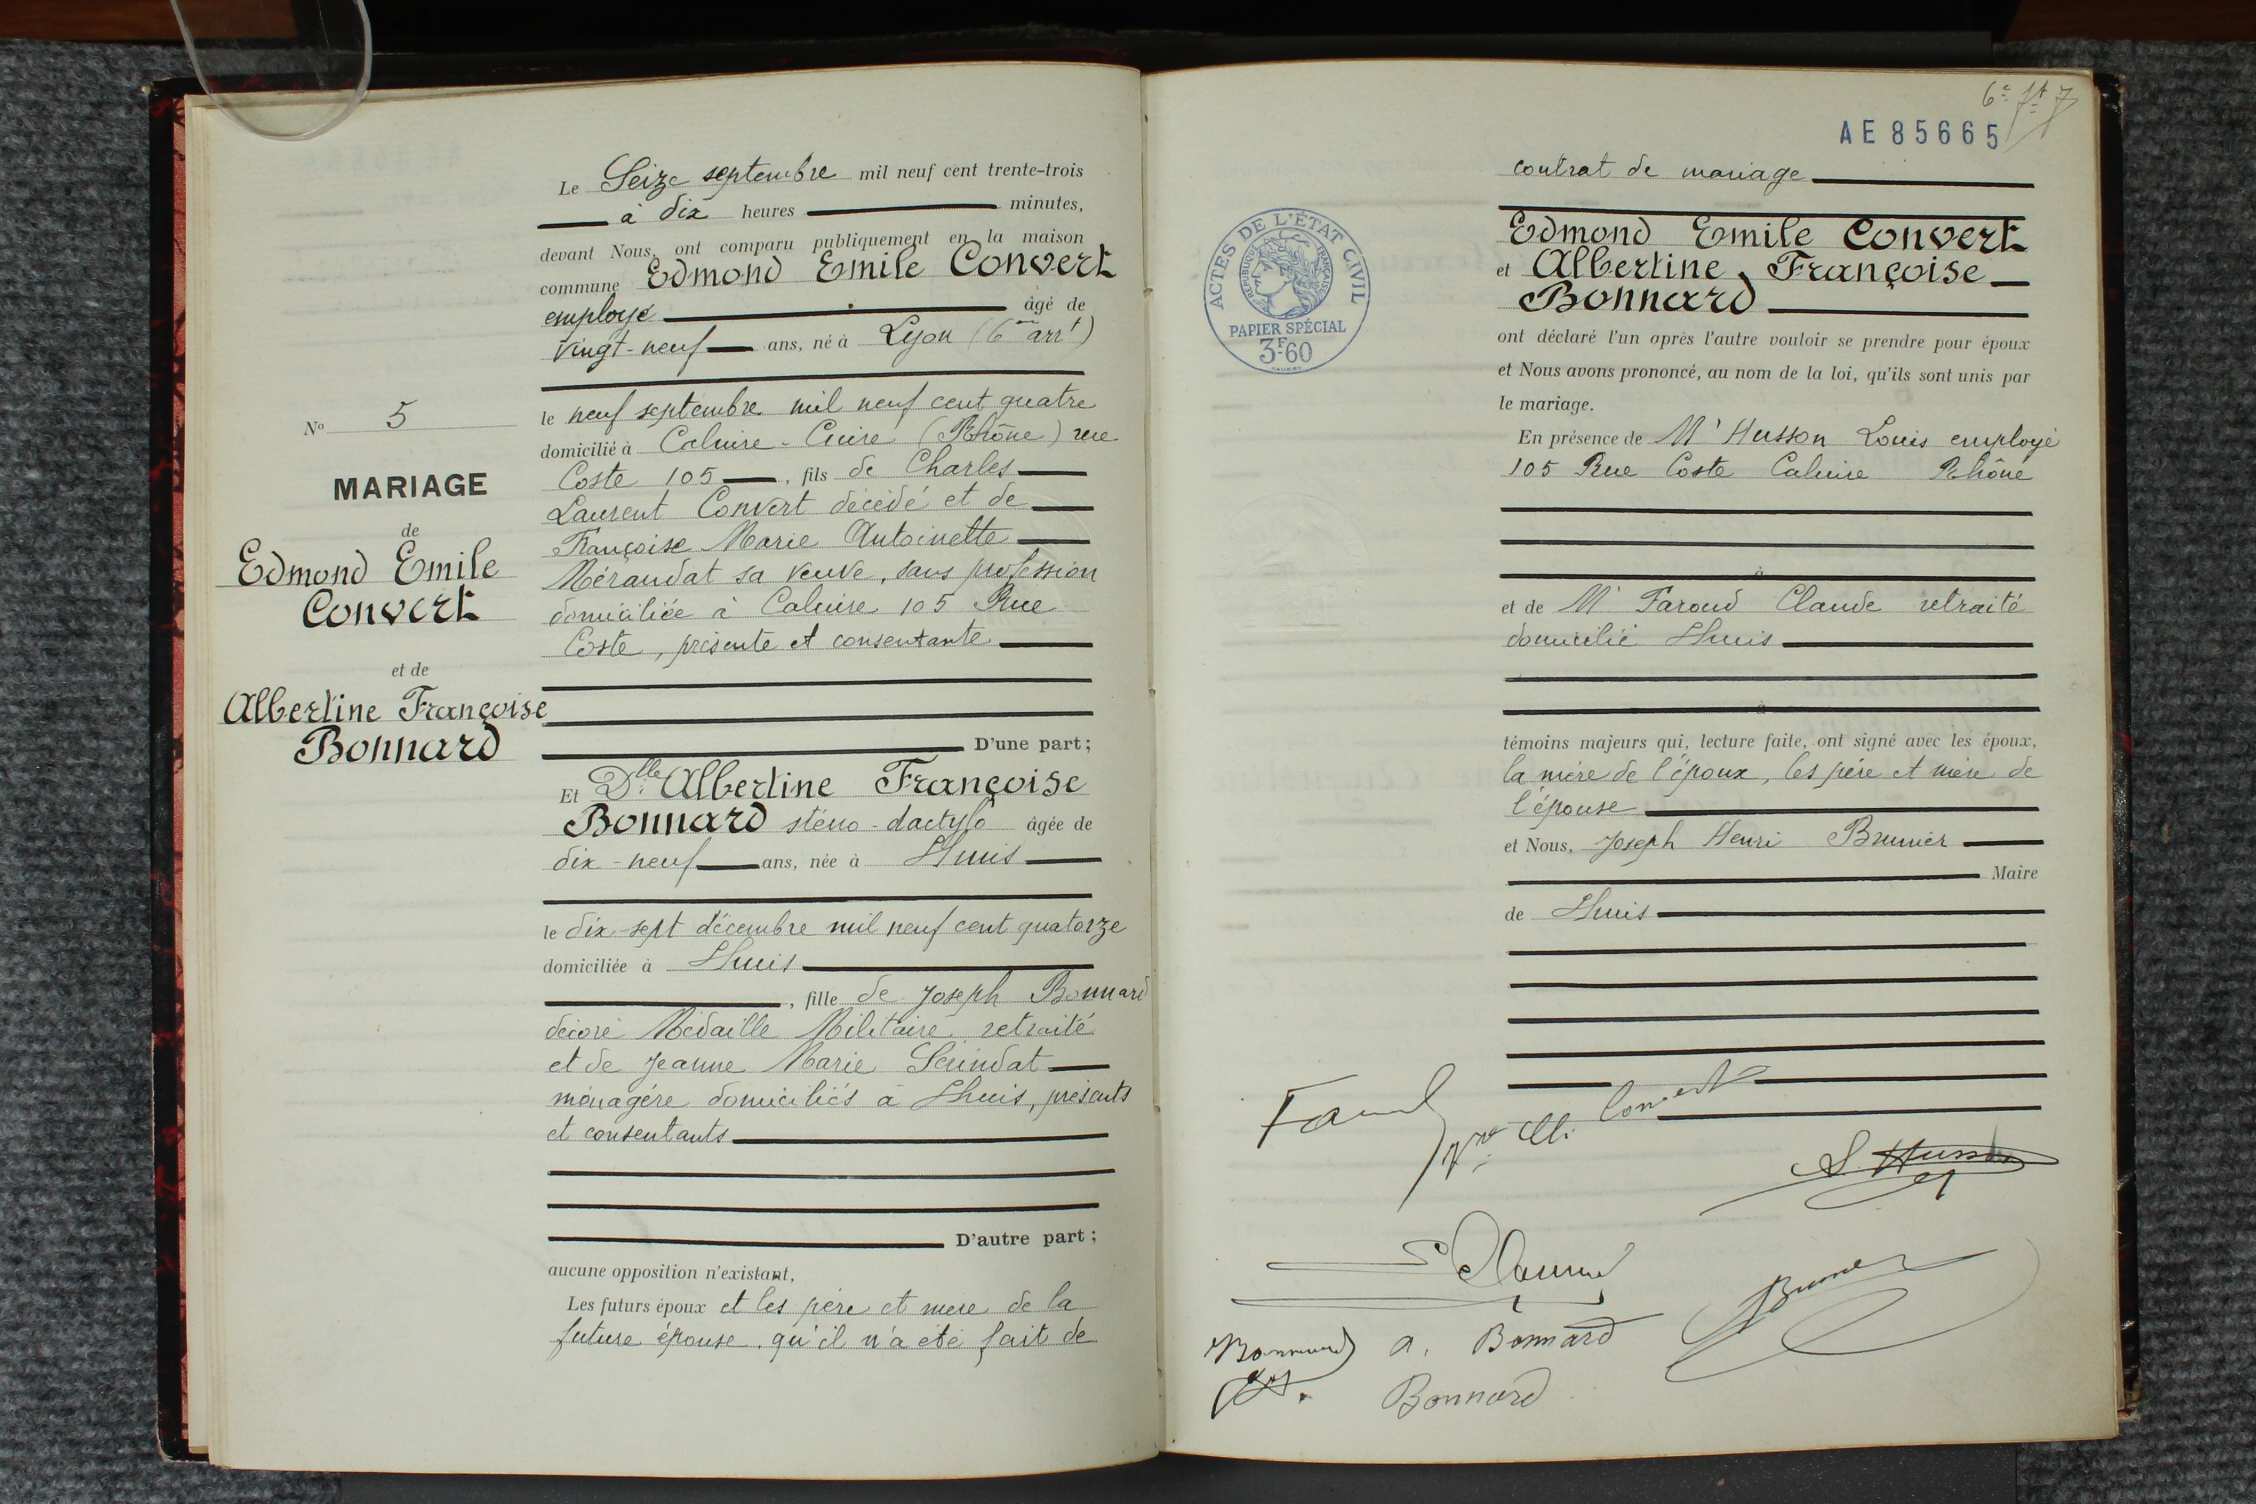 Le Seize septembre mil neuf cent trente-trois
à dix heures minutes,
devant Nous, ont comparu publiquement en la maison
commune Edmond Emile Convert
employé âgé de
vingt-neuf ans, né à Lyon (6me arrt)
le neuf septembre mil neuf cent quatre
domicilié à Caluire-Cuire (Rhône) rue
Coste 105, fils de Charles
Laurent Convert décédé et de
Françoise Marie Antoinette
Mérandat sa veuve, sans profession
domiciliée à Caluire 105 Rue
Coste, présente et consentante
D'une part;
Et Dlle Albertine Françoise
Bonnard sténo-dactylo âgée de
dix-neuf ans, née à Lhuis
le dix-sept décembre mil neuf cent quatorze
domiciliée à Lhuis
, fille de Joseph Bonnard
décoré Médaille Militaire, retraité
et de Jeanne Marie
ménagère domiciliés à Lhuis, présents
et consentants
D'autre part;
aucune opposition n'existant,
Les futurs époux et les père et mère de la
future épouse, qu'il n'a été fait de
No 5
MARIAGE
de
Edmond Emile
Convert
et de
Albertine Françoise
Bonnard
6e ft 7
AE 85665
ACTES DE L'ÉTAT CIVIL
RÉPUBLIQUE FRANÇAISE
PAPIER SPÉCIAL
3F.60
contrat de mariage
Edmond Emile Convert
et Albertine Françoise
Bonnard
ont déclaré l'un après l'autre vouloir se prendre pour époux
et Nous avons prononcé, au nom de la loi, qu'ils sont unis par
le mariage.
En présence de Mr Husson Louis employé
105 Rue Coste Caluire Rhône
à
et de Mr Faroud Claude retraité
domicilié Lhuis
à
témoins majeurs qui, lecture faite, ont signé avec les époux,
la mère de l'époux, les père et mère de
l'épouse
et Nous, Joseph Henri Brunier
Maire
de Lhuis
Vve Convert
L. Husson
Brunier
Bonnard
a. Bonnard
Bonnard